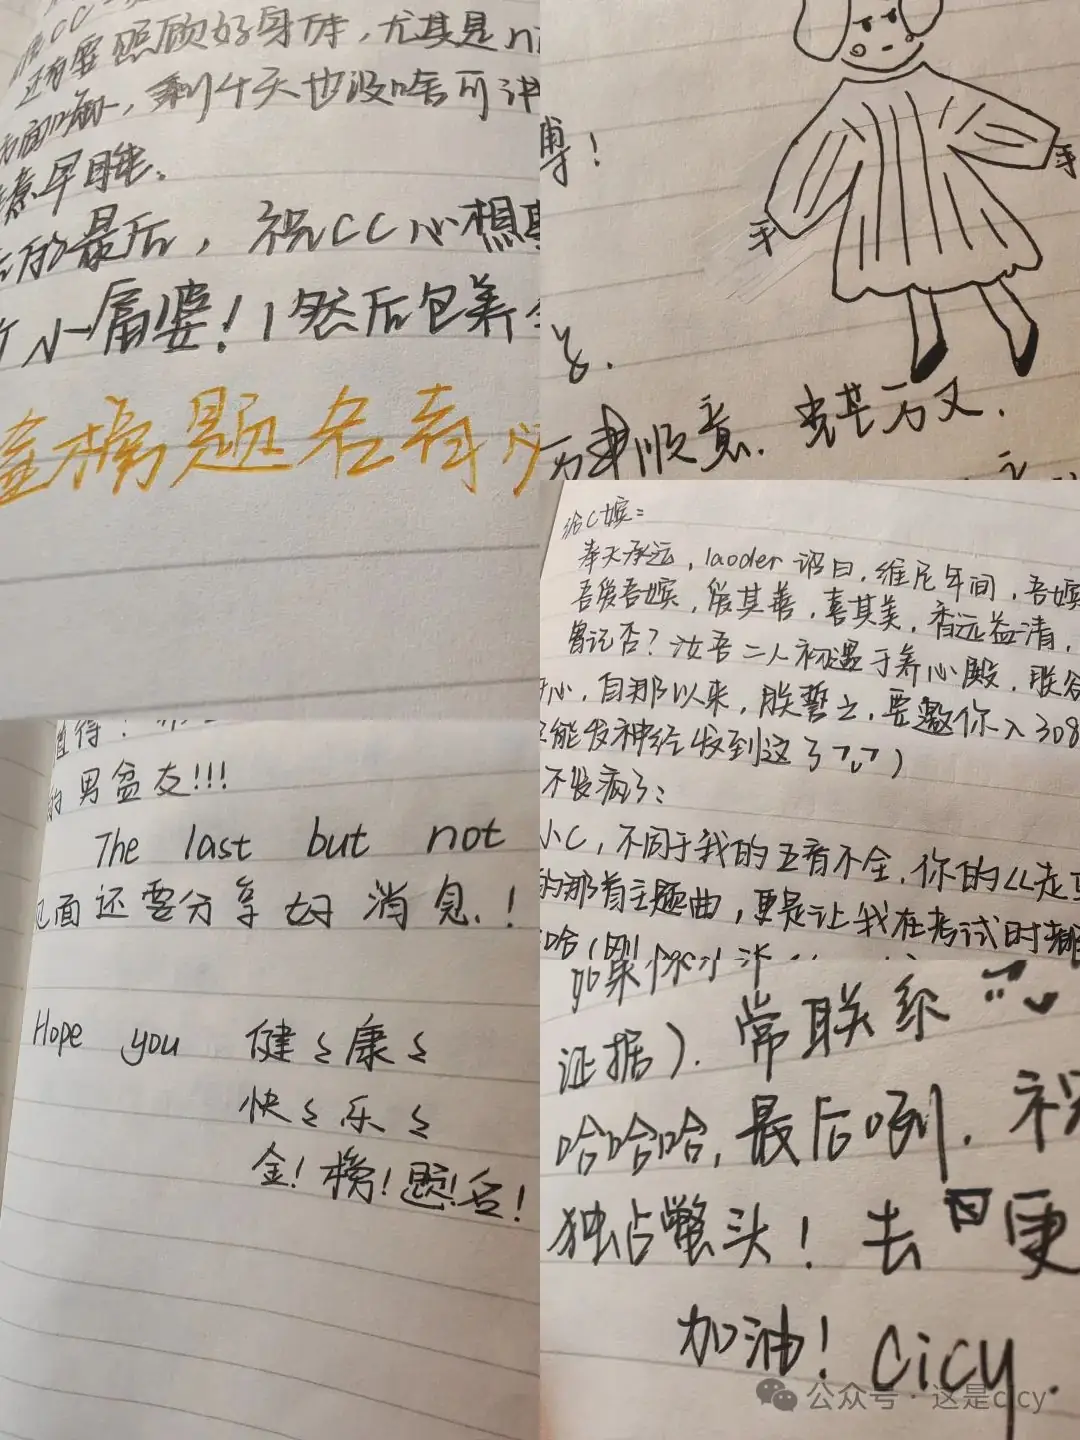 还有要照顾好身体,尤其是
,剩4天也没啥可
早睡。
最后,祝CC心想
小富婆!(然后包养
金榜题名
!
手
手
万事顺意.
给C嫔:
奉天承运,laoder诏曰,维尼年间,吾嫔
吾爱吾嫔,爱其善,喜其美,香远益清,
曾记否?汝吾二人初遇于养心殿,朕
,自那以来,朕誓之,要邀你入308
能发神经发到这了
不发病了:
小C,不同于我的五音不全,你的
的那首主题曲,更是让我在考试时
哈(刚
值得!
的男盆友!!!
The last but not
面还要分享好消息.!
Hope you 健ミ康ミ
快ミ乐ミ
金!榜!题!名!
如果你
证据).常联系
哈哈哈,最后咧.祝
独占鳌头!去
加油!cicy.
公众号·这是cicy